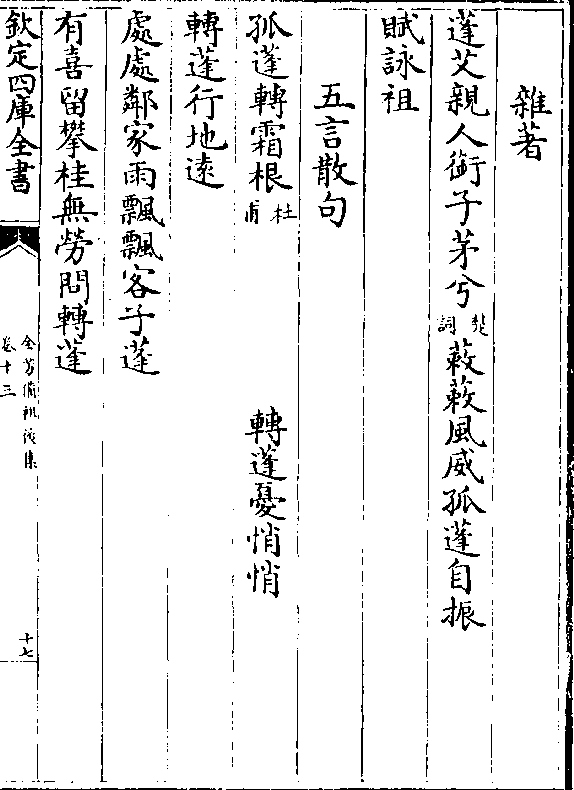 雜著
蓬艾親人衘子茅兮楚詞蔌蔌風威孤蓬自振
賦詠祖
五言散句
孤蓬轉霜根杜甫 轉蓬憂悄悄
轉蓬行地逺
處處鄰家雨飄飄客子蓬
有喜留攀桂無勞問轉蓬
欽定四庫全書
全芳備祖後集
卷十三
十七